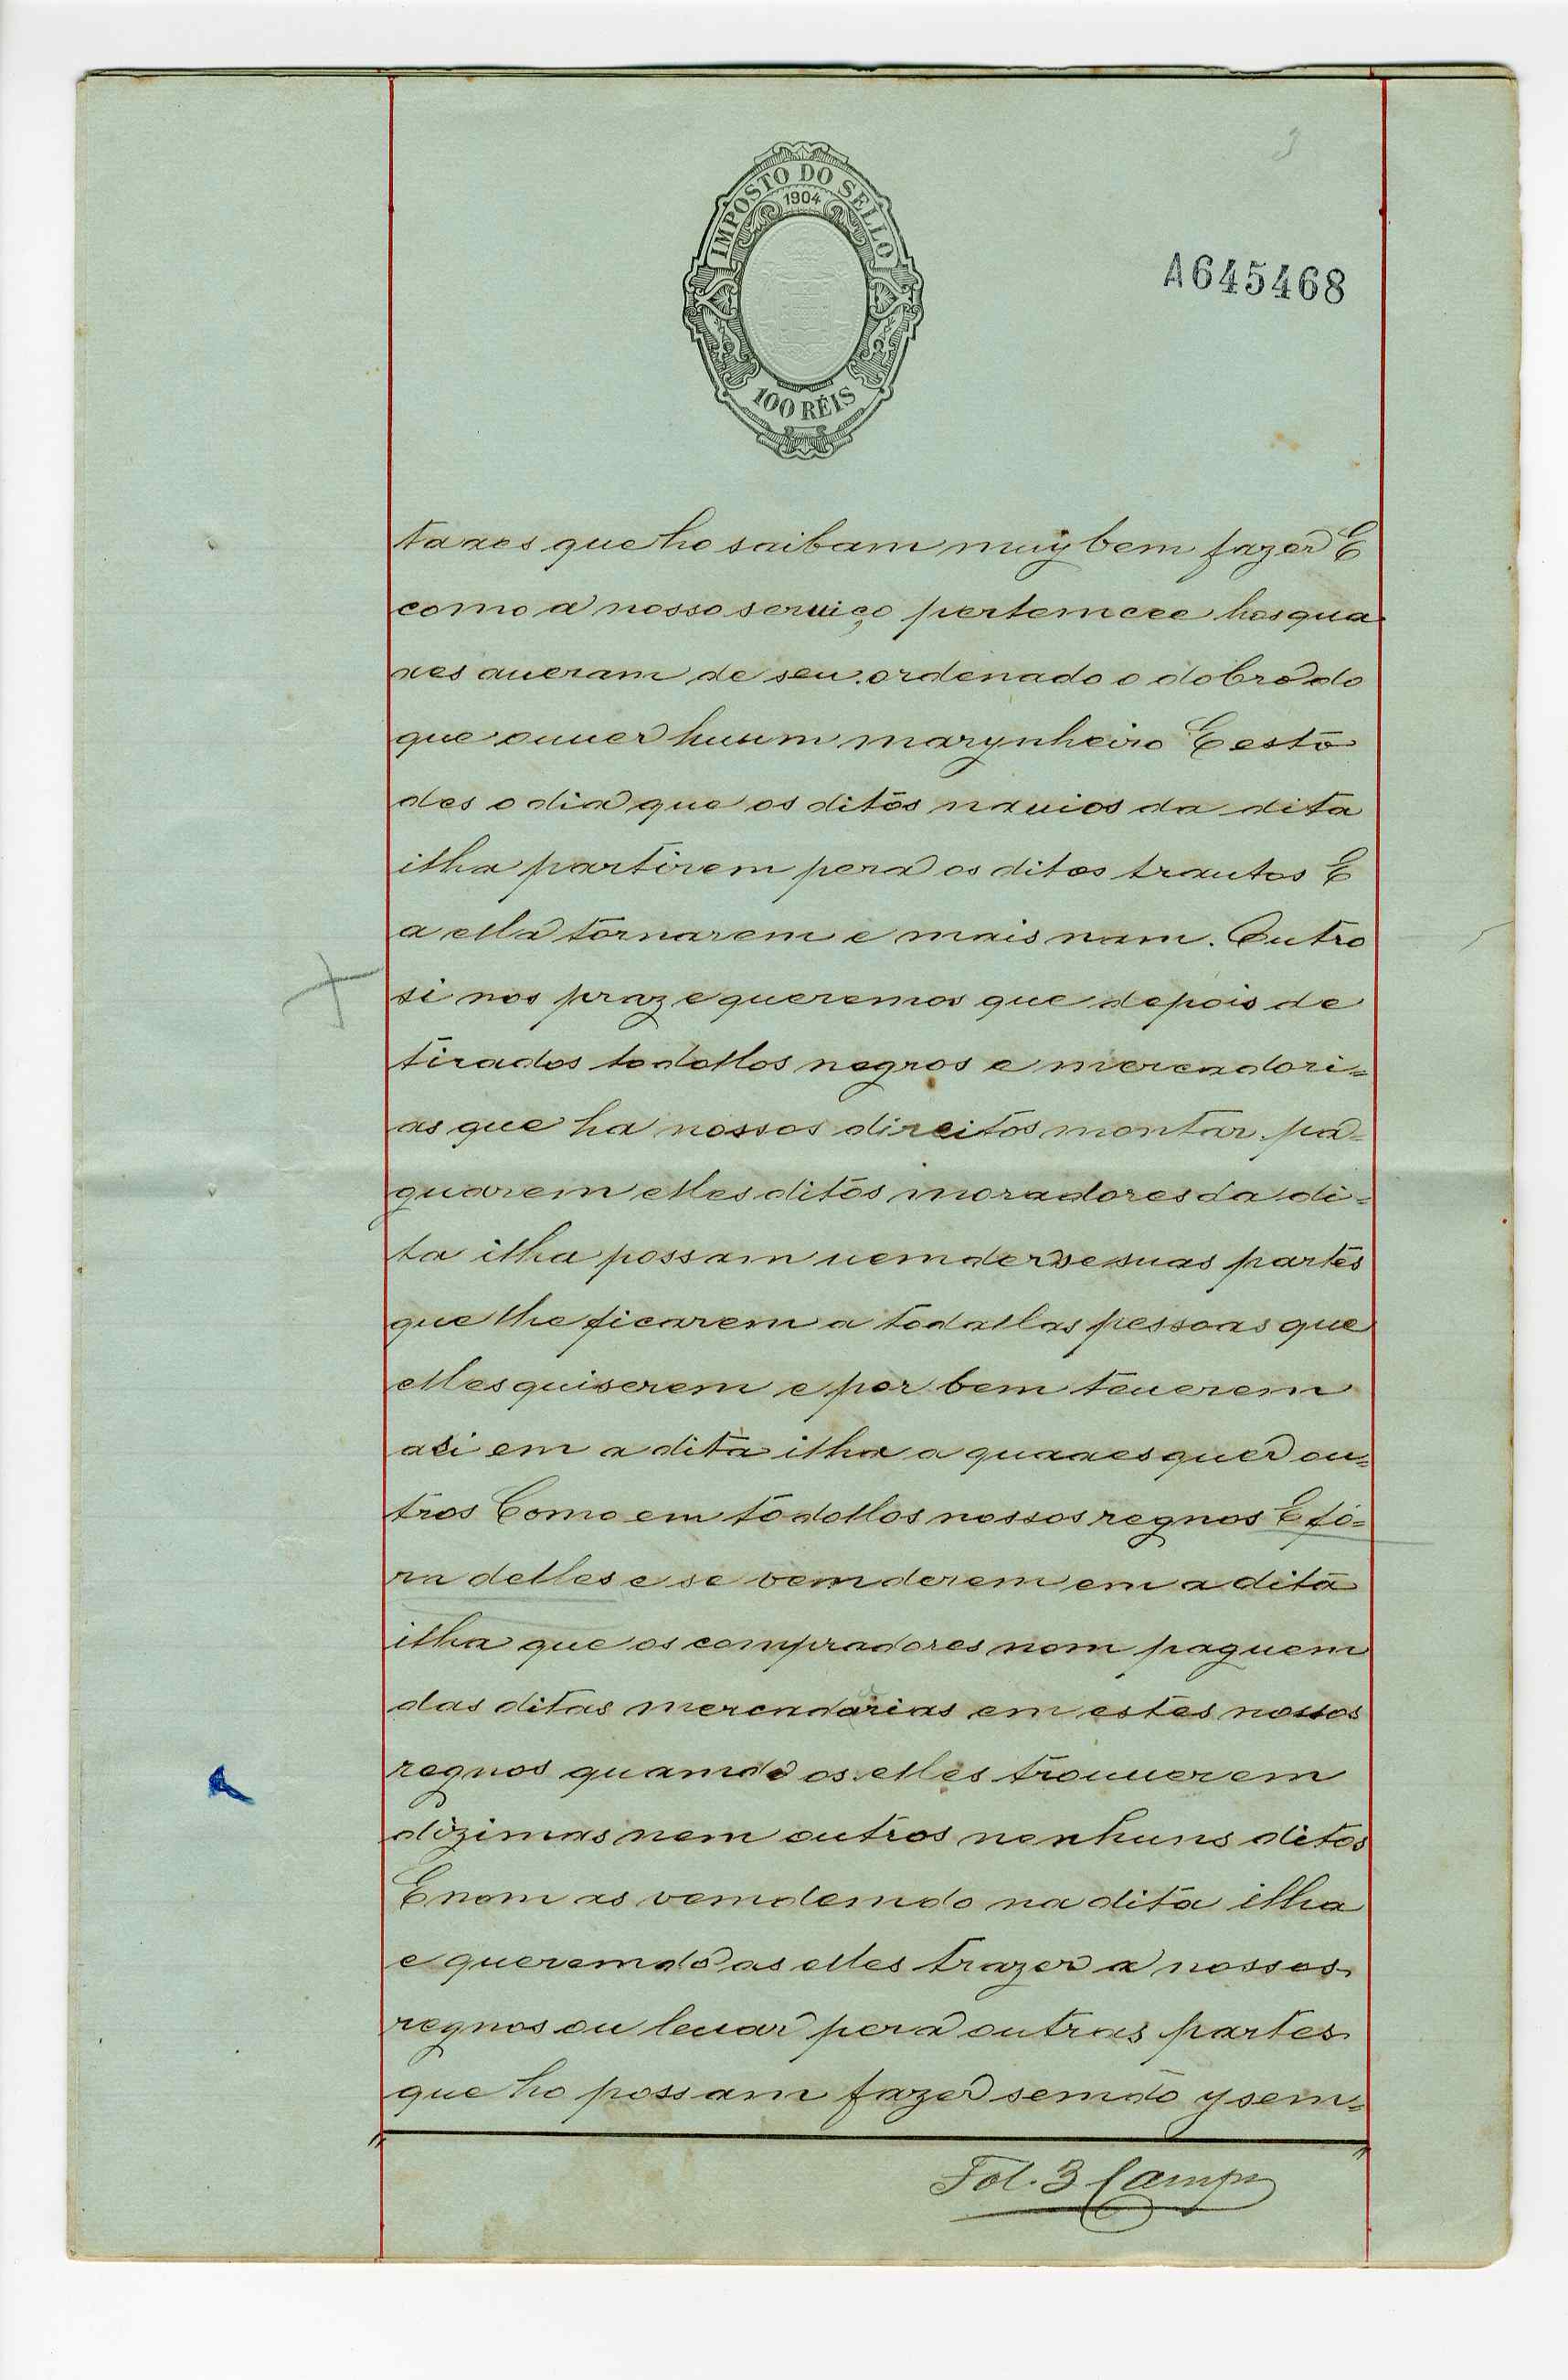 3
IMPOSTO DO SELLO
1904
100 RÉIS
A645468
taaes que ho saibam muy bem fazer E
como a nosso seruiço pertemcee hos qua
aes aueram de seu ordenado o dobro do
que ouuer huum marynheiro E esto
des o dia que os ditos nauios da dita
ilha partirem pera os ditos trautos E
a ella tornarem e mais nam. Outro
si nos praz e queremos que depois de
tirados todollos negros e mercadori=
as que ha nossos direitos montar pa=
guarem elles ditos moradores da di=
ta ilha possam uemder se suas partes
que lhe ficarem a todallas pessoas que
elles quiserem e por bem teuerem
asi em a dita ilha a quaaesquer ou=
tros Como em todollos nossos regnos E fó=
ra delles e se vemderem em a dita
ilha que os compradores nom paguem
das ditas mercadarias em estes nossos
regnos quamdo os elles trouuerem
dizimas nem outros nenhuns ditos
E nom as vemdemdo na dita ilha
e queremdo as elles trazer a nossos
regnos ou leuar pera outras partes
que ho possam fazer semdo ysem=
Fol. 3 Campos